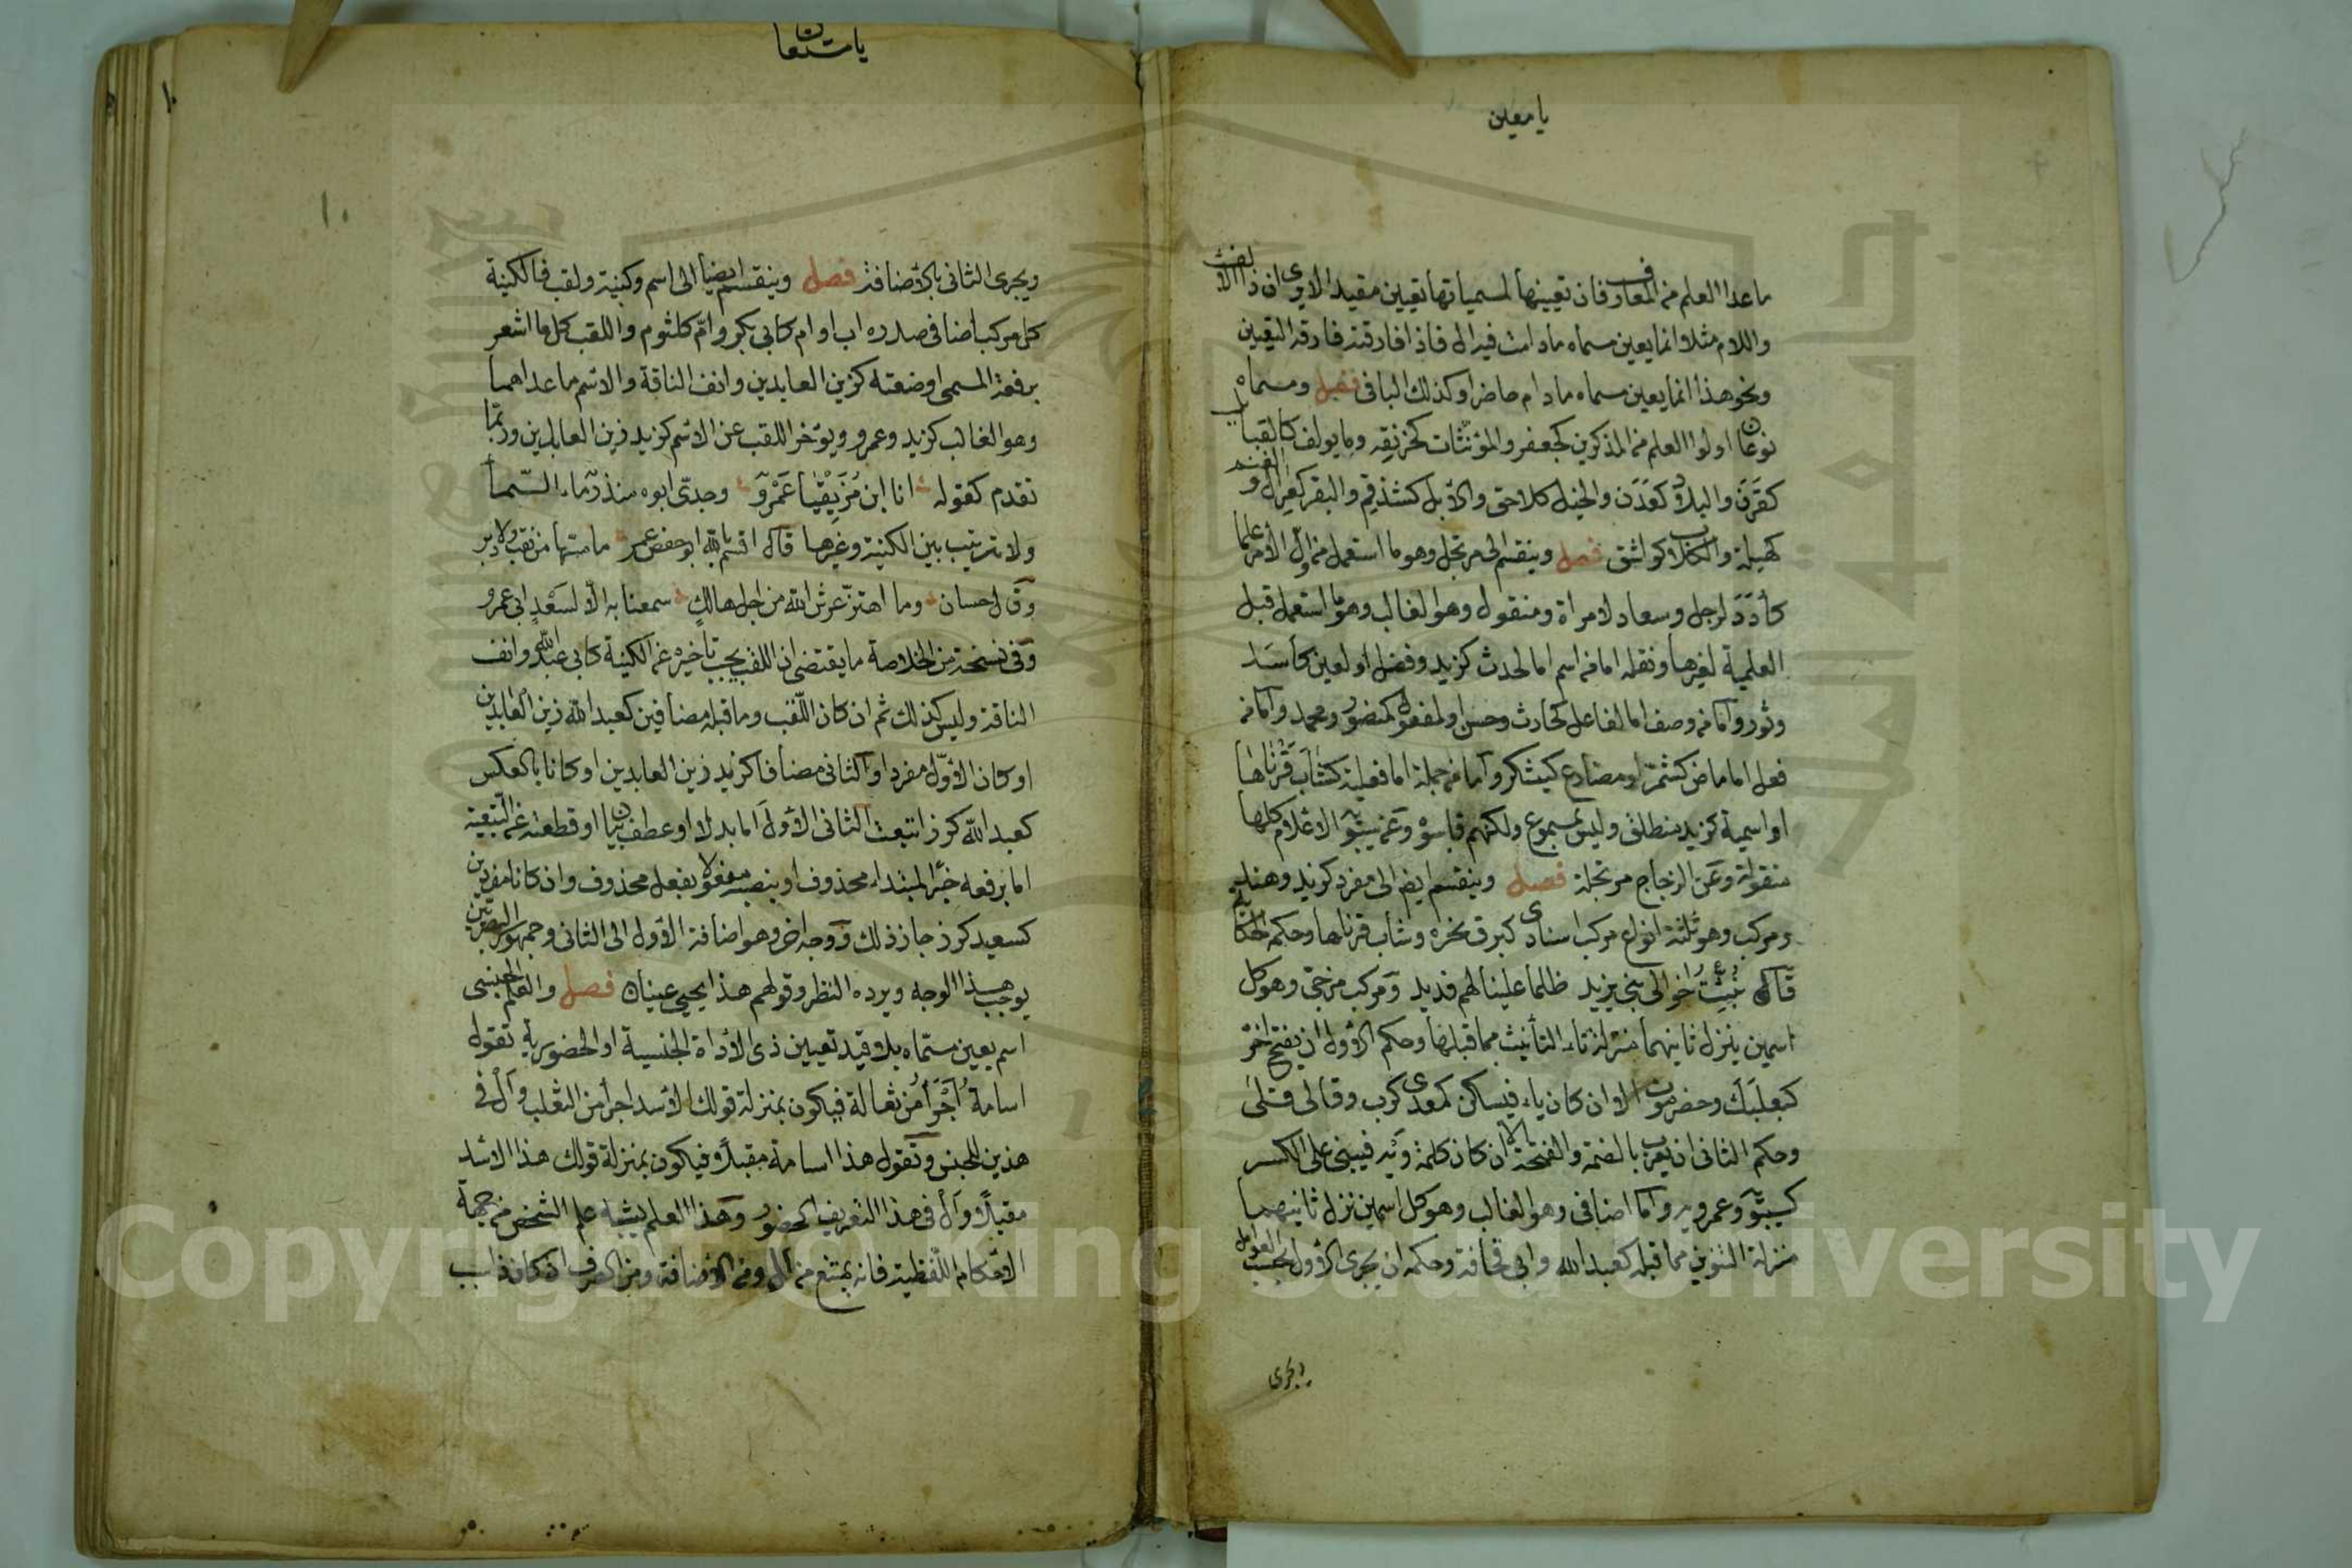 يا معين
ما عدا العلم من المعارف فان تعيينها لمسمياتها تعيين مقيد الا ترى ان ذا الالف
واللام مثلا انما يعين مسماه مادامت فيه ال فاذا فارقته فارقه التعيين
ونحو هذا انما يعين مسماه مادام حاضرا وكذلك الباقى فصل ومسماه
نوعان اولوا العلم من المذكرين كجعفر والمؤنثات كخرنق وما يولف كالقبايل
كقرن والبلاد كعدن والخيل كلاحق والابل كشذقم والبقر كعرار والغنم
كهيلة والكلاب كواشق فصل وينقسم الى مرتجل وهو ما استعمل من اول الامر علما
كأدد لرجل وسعاد لامراة ومنقول وهو الغالب وهو ما استعمل قبل
العلمية لغيرها ونقله اما من اسم اما لحدث كزيد وفضل او لعين كأسد
وثور واما من وصف اما لفاعل كحارث وحسن او لمفعول كمنصور ومحمد واما من
فعل اما ماض كشمر او مضارع كيشكر واما من جملة اما فعلية كشاب قرناها
او اسمية كزيد منطلق وليس بمسموع ولكنهم قاسوه وعن سيبويه الاعلام كلها
منقولة وعن الزجاج مرتجلة فصل وينقسم ايضا الى مفرد كزيد وهند
ومركب وهو ثلثة انواع مركب اسنادى كبرق نحره وشاب قرناها وحكمه الحكاية
قال نبئت اخوالى بنى يزيد ظلما علينا لهم فديد ومركب مزجى وهو كل
اسمين ينزل ثانيهما منزلة تاء التأنيث مما قبلها وحكم الاول ان يفتح اخره
كبعلبك وحضرموت الا ان كان ياء فيسكن كمعدى كرب وقالى قلى
وحكم الثانى ان يعرب بالضمة والفتحة الا ان كان كلمة ويه فيبنى على الكسر
كسيبويه وعمرويه واما اضافى وهو الغالب وهو كل اسمين نزل ثانيهما
منزلة التنوين مما قبله كعبد الله وابى قحافة وحكمه ان يجرى الاول بحسب العوامل
ويجرى
يا مستعان
١٠
١٠
ويجرى الثانى بالاضافة فصل وينقسم ايضا الى اسم وكنية ولقب فالكنية
كل مركب اضافى صدره اب او ام كابى بكر وام كلثوم واللقب كل ما اشعر
برفعة المسمى او ضعته كزين العابدين وانف الناقة والاسم ما عداهما
وهو الغالب كزيد وعمرو ويؤخر اللقب عن الاسم كزيد زين العابدين وربما
تقدم كقوله انا ابن مزيقيا عمرو وجدى ابوه منذر ماء السما
ولا ترتيب بين الكنية وغيرها قال اقسم بالله ابو حفص عمر ما مسها من نقب ولا دبر
وقال حسان وما اهتز عرش الله من اجل هالك سمعنا به الا لسعد ابى عمرو
وفى نسخة من الخلاصة ما يقتضى ان اللقب يجب تاخيره عن الكنية كابى عبد الله وانف
الناقة وليس كذلك ثم ان كان اللقب وما قبله مضافين كعبد الله زين العابدين
او كان الاول مفردا والثانى مضافا كزيد زين العابدين او كانا بالعكس
كعبد الله كرز اتبعت الثانى الاول اما بدلا او عطف بيان او قطعته عن التبعية
اما برفعه خبر المبتداء محذوف او بنصبه مفعولا بفعل محذوف وان كانا مفردين
كسعيد كرز جاز ذلك ووجه اخر وهو اضافة الاول الى الثانى وجمهور البصريين
يوجب هذا الوجه ويرده النظر وقولهم هذا يحيى عينان فصل والعلم الجنسى
اسم يعين مسماه بلا قيد تعيين ذى الاداة الجنسية او الحضورية تقول
اسامة اجرأ من ثعالة فيكون بمنزلة قولك الاسد اجرأ من الثعلب وال فى
هذين للجنس وتقول هذا اسامة مقبلا فيكون بمنزلة قولك هذا الاسد
مقبلا وال فى هذا التعريف الحضور وهذا العلم يشبه علم الشخص من جهة
الاحكام اللفظية فانه يمتنع من ال ومن الاضافة ومن الصرف ان كان ذا سبب
Copyright © King Saud University